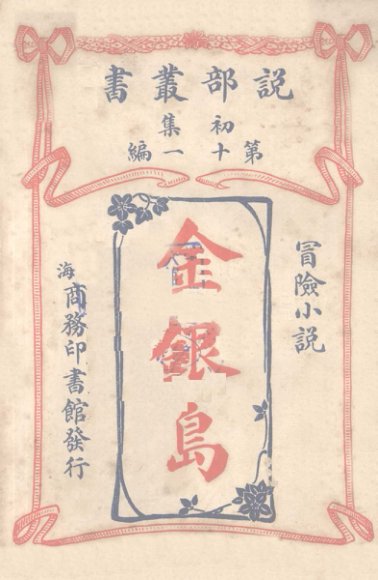 説部叢書
初集
第十一編
冒險小説
金銀島
海商務印書館發行